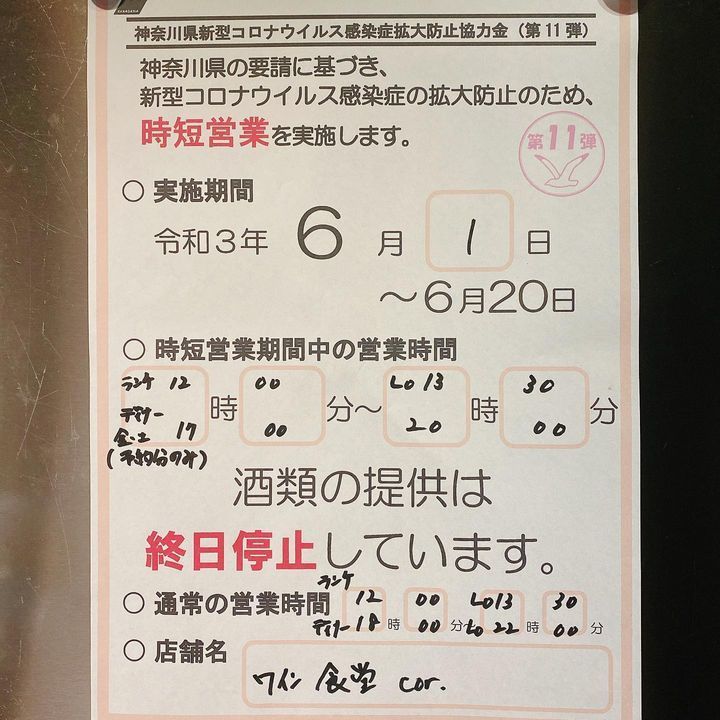 神奈川県新型コロナウイルス感染症拡大防止協力金（第11弾）
神奈川県の要請に基づき、
新型コロナウイルス感染症の拡大防止のため、
時短営業を実施します。
第11弾
○ 実施期間
令和3年 6月 1日
～6月20日
○ 時短営業期間中の営業時間
ランチ 12 00 Lo 13 30
時 分～ 時 分
ディナー
金・土 17 00 20 00
(予約分のみ)
酒類の提供は
終日停止しています。
ランチ
○ 通常の営業時間 12 00 Lo 13 30
ディナー 18時 00分～ Lo 22時 00分
○ 店舗名
ワイン食堂 cor.